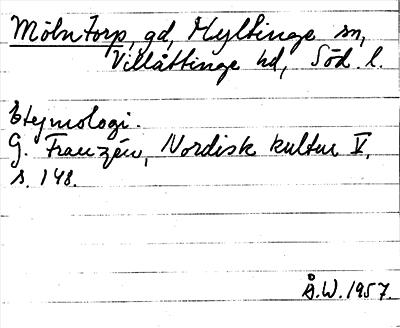 Mölntorp, gd, Hyltinge sn,
Villåttinge hd, Söd. l.
Etymologi.
G. Franzén, Nordisk kultur V,
s. 148.
Å.W. 1957.